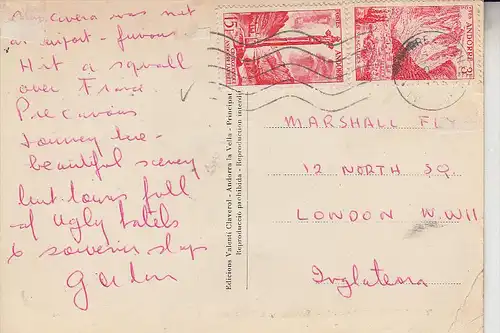 was not
at airport - furious
Hit a squall
over France
Precarious
Journey here -
beautiful scenery
but towns full
of ugly hotels
& souvenir shops
Gordon
Edicions Valentí Claverol - Andorra la Vella - Principat
Reproducció prohibida - Reproduction interdite
15F
ANDORRE
ANDORRE
MARSHALL
12 NORTH SQ.
LONDON N.W11
Inglaterra